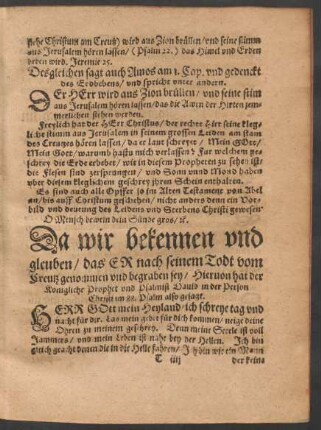 siehe Christum am Creutz) wird aus Zion brüllen/ vnd seine stimm
aus Jerusalem hören lassen/ (Psalm 22.) das Himel vnd Erden
beben wird. Jeremie 25.
Desgleichen sagt auch Amos am 1. Cap. vnd gedenckt
des Erdbebens/ vnd spricht vnter andern.
DEr HErr wird aus Zion brüllen/ vnd seine stim
aus Jerusalem hören lassen/ das die Awen der Hirten jem-
merlichen stehen werden.
Freylich hat der HErr Christus/ der rechte Hirt seine kleg-
liche stimm aus Jerusalem in seinem grossen Leiden am stam
des Creutzes hören lassen/ da er laut schreyet/ Mein GOtt/
Mein Gott/ warumb hastu mich verlassen? Fur welchem ge-
schrey die Erde erbebet/ wie in diesem Propheten zu sehen ist/
die Felsen sind zersprungen/ vnd Sonn vnd Mond haben
vber diesem kleglichem geschrey jhren Schein enthalten.
Es sind auch alle Opffer so im Alten Testament von Abel
an/ bis auff Christum geschehen/ nichts anders denn ein Vor-
bild vnd deutung des Leidens vnd Sterbens Christi gewesen
O Mensch bewein dein Sünde gros/ etc.
Da wir bekennen vnd
gleuben/ das ER nach seinem Todt vom
Creutz genommen vnd begraben sey/ Hieruon hat der
Königliche Prophet vnd Psalmist Dauid in der Person
Christi im 88. Psalm also gesagt.
HERR GOtt mein Heyland/ ich schreye tag vnd
nacht für dir. Las mein gebet für dich kommen/ neige deine
Ohren zu meinem geschrey. Denn meine Seele ist voll
Jammers/ vnd mein Leben ist nahe bey der Hellen. Ich bin
gleich geacht denen die in die Helle fahren/ Ich bin wie ein Mann
T iiij der keine